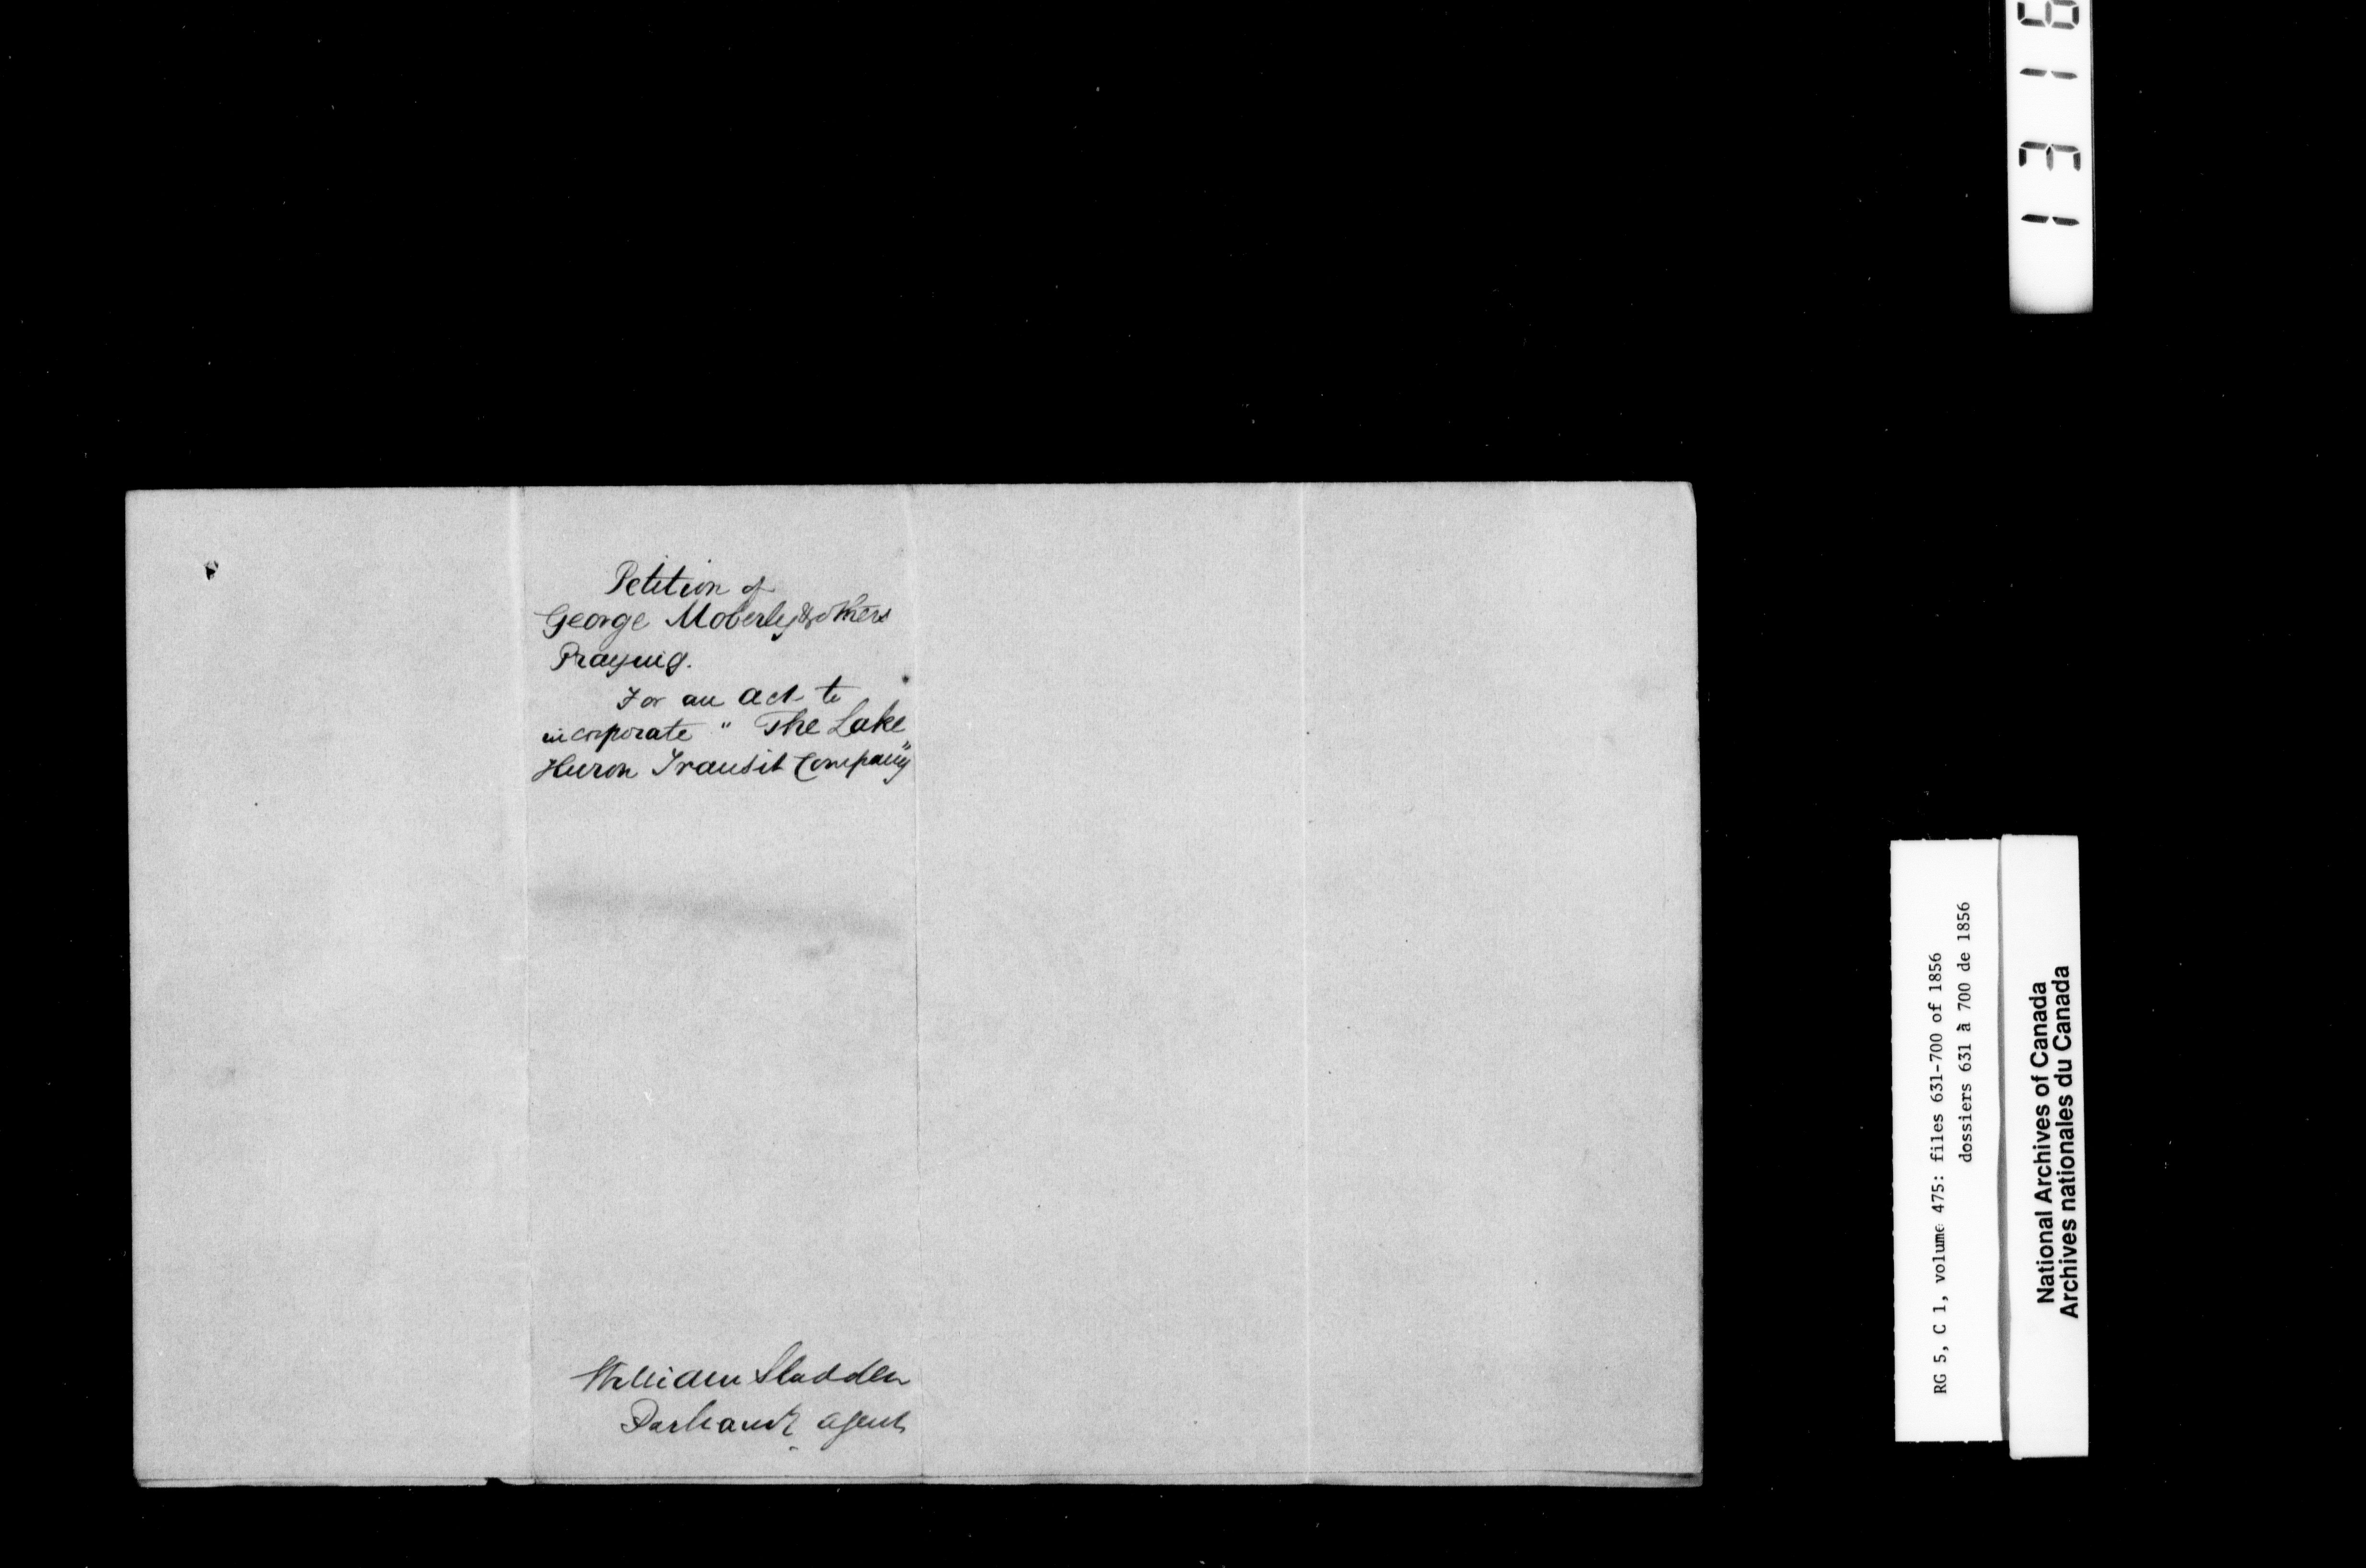 Petition of
George Moberly & others
Praying.
For an act to
incorporate " The Lake
Huron Transit Company"
William Sladden
Parliamt. agent
1316
RG 5, C 1, volume 475: files 631-700 of 1856
dossiers 631 à 700 de 1856
National Archives of Canada
Archives nationales du Canada